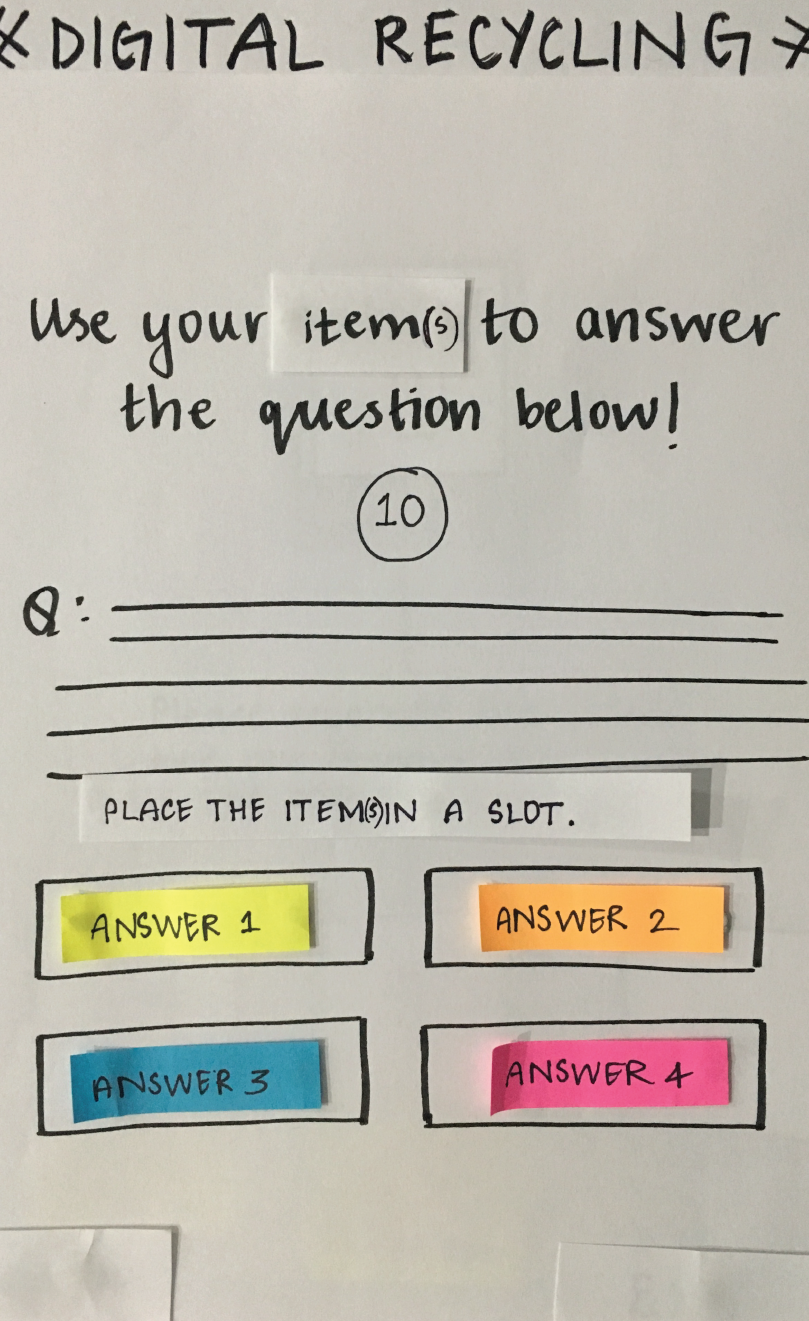 DIGITAL RECYCLING
Use your item(s) to answer
the question below!
10
Q:
PLACE THE ITEM(S) IN A SLOT.
ANSWER 1
ANSWER 2
ANSWER 3
ANSWER 4